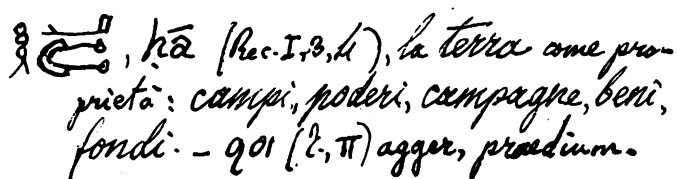 , ḥā (Rec. I, 3, 4), la terra come pro-
prietà: campi, poderi, campagne, beni,
fondi. – ϥⲟⲓ agger, prædium.